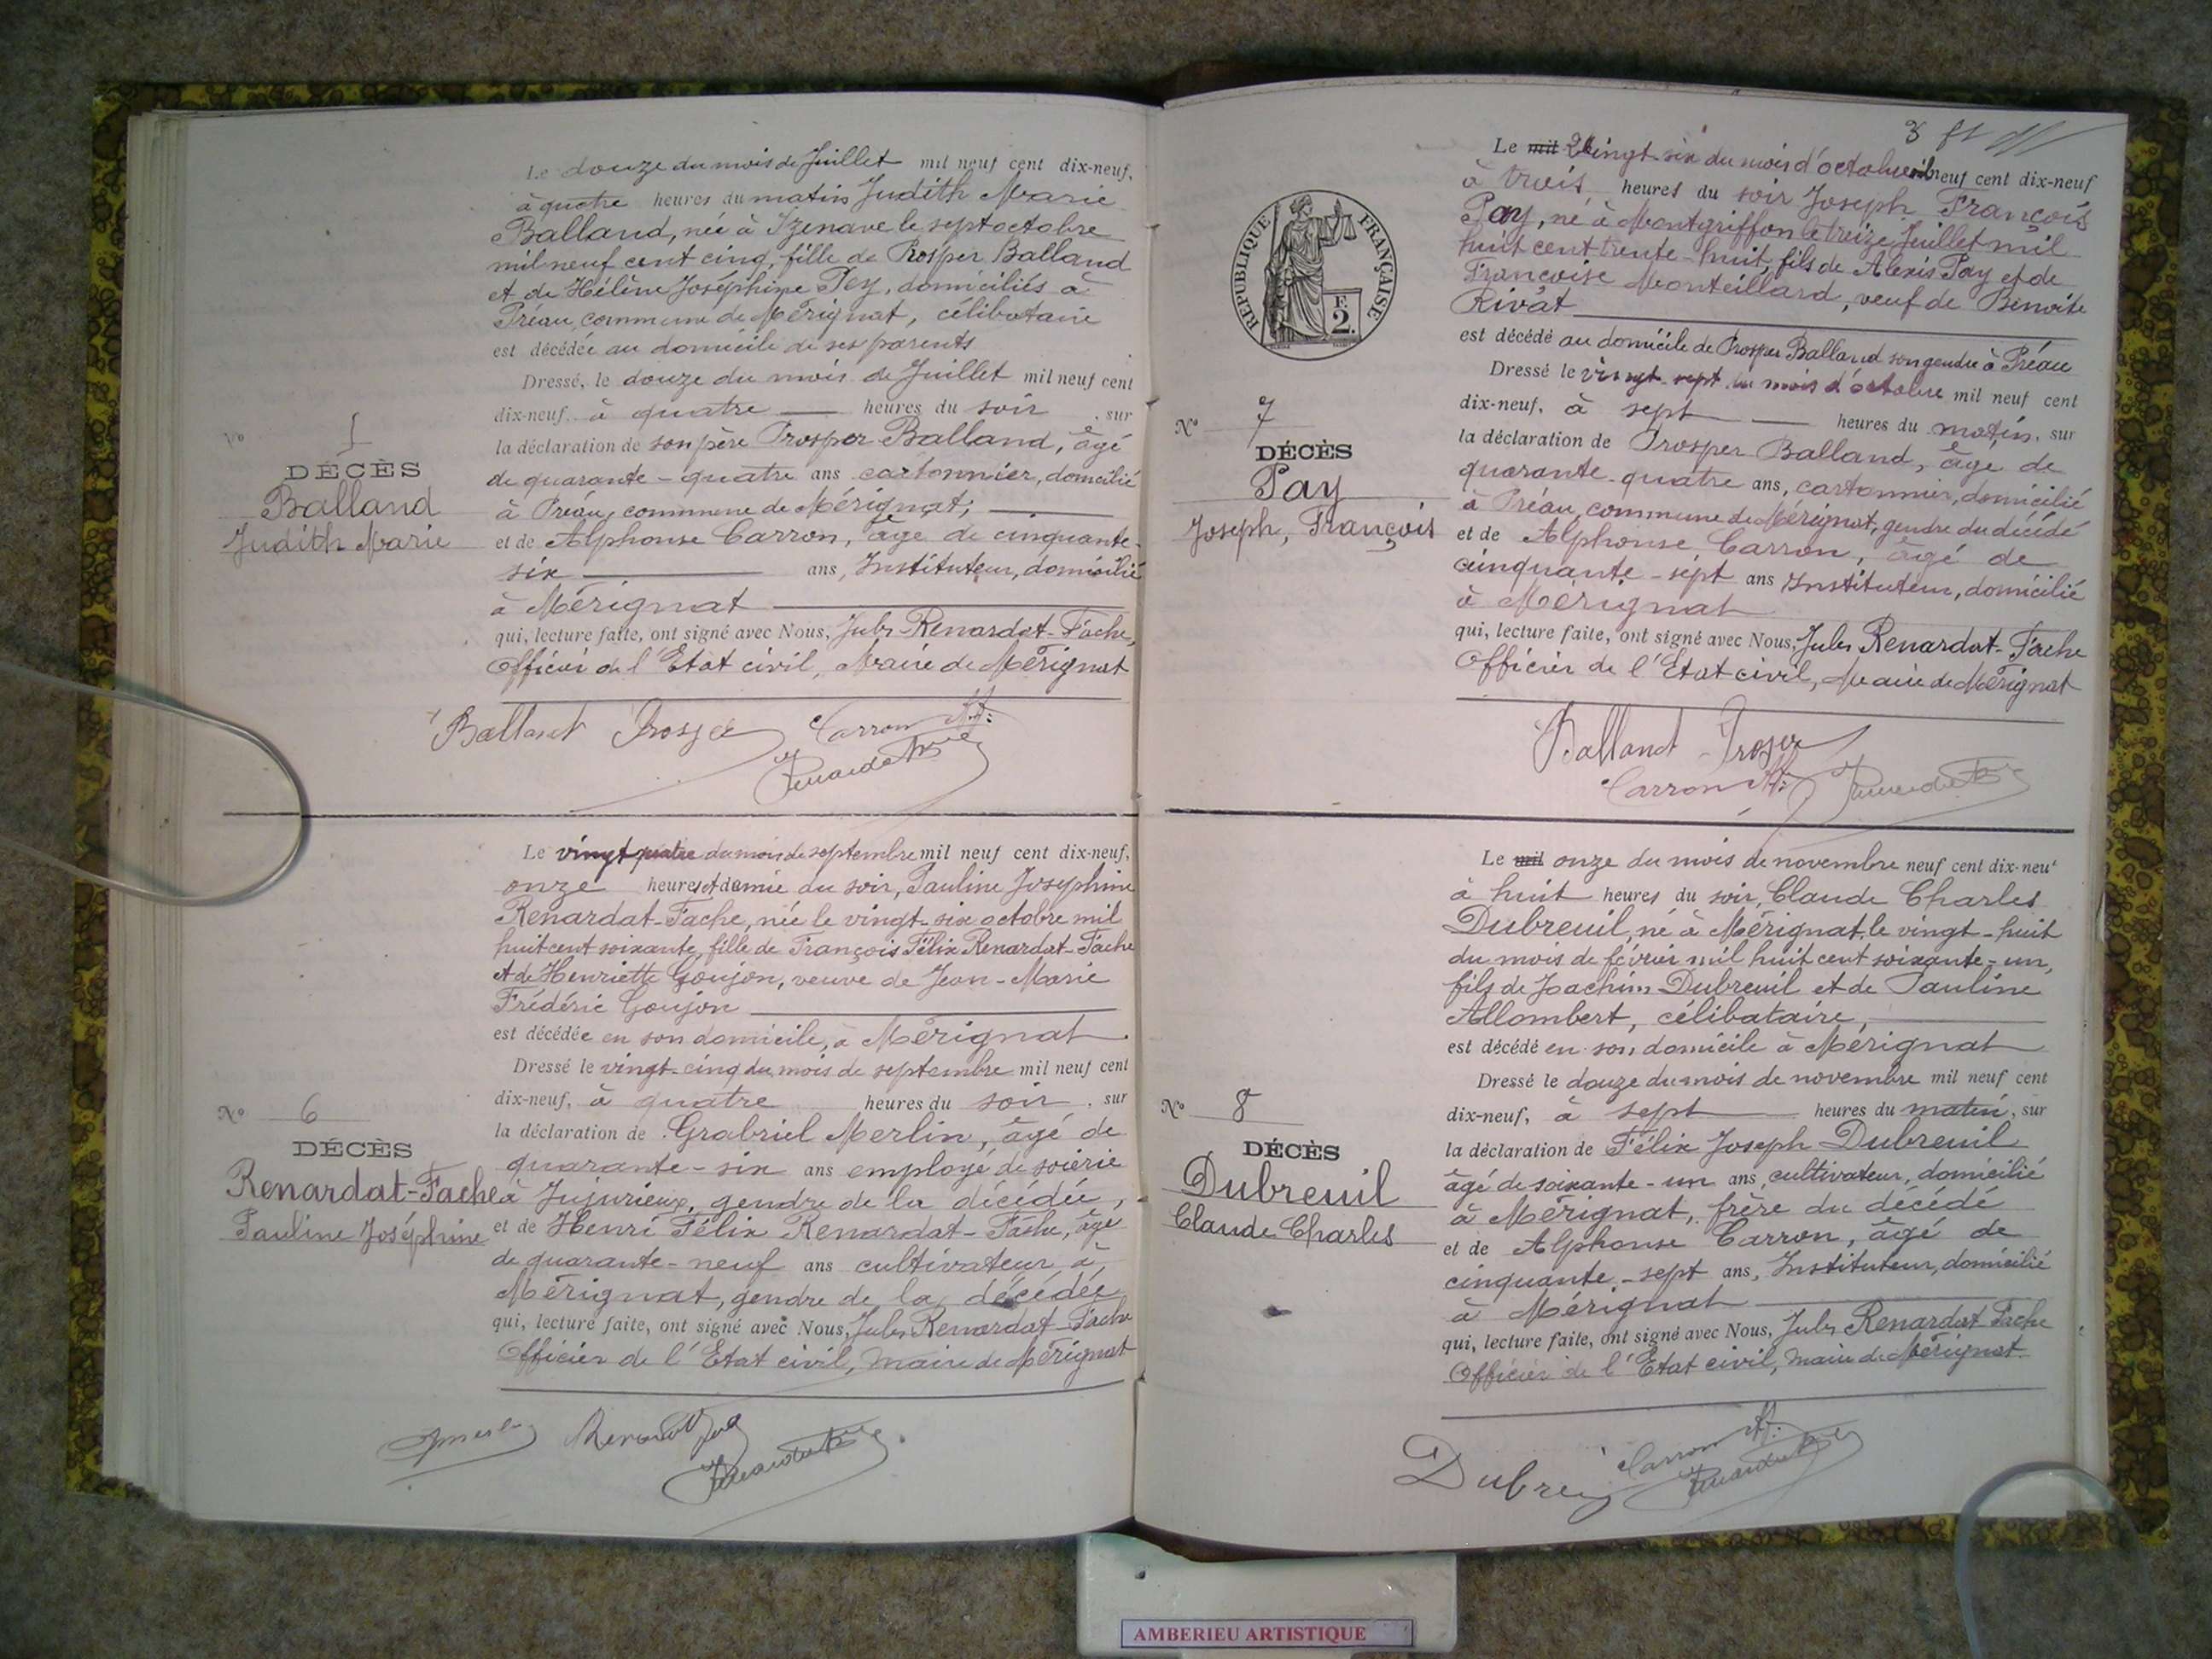 Le douze du mois de Juillet mil neuf cent dix-neuf,
à quatre heures du matin Judith Marie
Balland, née à Izenave le sept octobre
mil neuf cent cinq, fille de Prosper Balland
et de Hélène Joséphine Pey, domiciliés à
Préau, commune de Mérignat, célibataire
est décédée au domicile de ses parents
Dressé, le douze du mois de Juillet mil neuf cent
dix-neuf. à quatre heures du soir, sur
la déclaration de son père Prosper Balland, âgé
de quarante-quatre ans cartonnier, domicilié
à Préau, commune de Mérignat;
et de Alphonse Carron, âgé de cinquante-
six ans, Instituteur, domicilié
à Mérignat
qui, lecture faite, ont signé avec Nous, Jules Renardat-Fache,
Officier de l'Etat civil, Maire de Mérignat
No
DÉCÈS
Balland
Judith Marie
Balland Prosper Carron Al:
Le vingt quatre du mois de septembre mil neuf cent dix-neuf,
onze heures et demie du soir, Pauline Josephine
Renardat-Fache, née le vingt-six octobre mil
huit cent soixante, fille de François Félix Renardat-Fache
et de Henriette Goujon, veuve de Jean-Marie
Frédéric Goujon
est décédée en son domicile, à Mérignat
Dressé le vingt-cinq du mois de septembre mil neuf cent
dix-neuf, à quatre heures du soir, sur
la déclaration de Grabriel Merlin, âgé de
quarante-six ans employé de soierie
à Jujurieux, gendre de la décédée,
et de Henri Félix Renardat-Fache, âgé
de quarante-neuf ans cultivateur à
Mérignat, gendre de la décédée
qui, lecture faite, ont signé avec Nous, Jules Renardat-Fache
Officier de l'Etat civil, Maire de Mérignat
No 6
DÉCÈS
Renardat-Fache
Pauline Joséphine
3
Le mil vingt-six du mois d'octobre mil neuf cent dix-neuf
à trois heures du soir Joseph François
Pay, né à Montgriffon le treize Juillet mil
huit cent trente-huit, fils de Alexis Pay et de
Françoise Monteillard, veuf de Benoite
Rivat
est décédé au domicile de Prosper Balland son gendre à Préau
Dressé le vingt-sept du mois d'octobre mil neuf cent
dix-neuf, à sept heures du matin, sur
la déclaration de Prosper Balland, âgé de
quarante-quatre ans, cartonnier, domicilié
à Préau, commune de Mérignat, gendre du décédé
et de Alphonse Carron, âgé de
cinquante-sept ans Instituteur, domicilié
à Mérignat
qui, lecture faite, ont signé avec Nous, Jules Renardat-Fache
Officier de l'Etat civil, Maire de Mérignat
RÉPUBLIQUE FRANÇAISE
F.
2.
No 7
DÉCÈS
Pay
Joseph, François
Balland Prosper
Carron Al:
Le mil onze du mois de novembre neuf cent dix-neuf
à huit heures du soir, Claude Charles
Dubreuil, né à Mérignat, le vingt-huit
du mois de février mil huit cent soixante-un,
fils de Joachim Dubreuil et de Pauline
Allombert, célibataire,
est décédé en son domicile à Mérignat
Dressé le douze du mois de novembre mil neuf cent
dix-neuf, à sept heures du matin, sur
la déclaration de Félix Joseph Dubreuil
âgé de soixante-un ans, cultivateur, domicilié
à Mérignat, frère du décédé
et de Alphonse Carron, âgé de
cinquante-sept ans, Instituteur, domicilié
à Mérignat
qui, lecture faite, ont signé avec Nous, Jules Renardat Fache
Officier de l'Etat civil, Maire de Mérignat
No 8
DÉCÈS
Dubreuil
Claude Charles
Carron Al:
AMBERIEU ARTISTIQUE